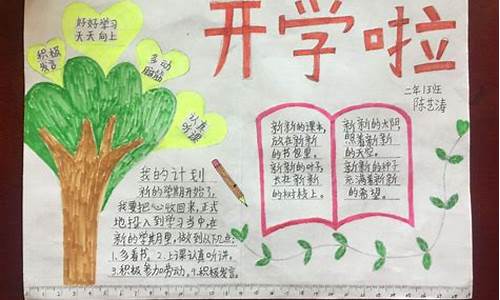 开学啦
二年13班
陈艺涛
好好学习
天天向上
积极
发言
多动
脑筋
认真
听课
我的计划
新的学期开始了,
我要把心收回来,正式
地投入到学习当中,在
新的学期里,做到以下几点:
1.多看书。2.上课认真听讲。
3.积极参加劳动。4.积极发言。
新新的课本,
放在新新
的书包里。
新新的叶子,
长在新新
的树枝上。
新新的太阴
照着新新
的天空。
新新的种子
充满着新新
的希望。